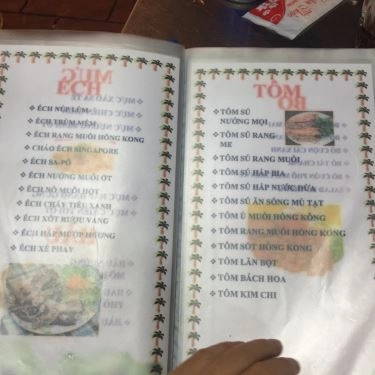 ẾCH
ẾCH NÚP LÙM
ẾCH TRÙM MỀM
ẾCH RANG MUỐI HỒNG KONG
CHÁO ẾCH SINGAPORE
ẾCH SA-PÔ
ẾCH NƯỚNG MUỐI ỚT
ẾCH NÔ MUỐI HỘT
ẾCH CHÁY TIÊU XANH
ẾCH XỐT RƯỢU VANG
ẾCH HẤP MƯỚP HƯƠNG
ẾCH XÉ PHAY
TÔM
TÔM SÚ
NƯỚNG MỌI
TÔM SÚ RANG
ME
TÔM SÚ RANG MUỐI
TÔM SÚ HẤP BIA
TÔM SÚ HẤP NƯỚC DỪA
TÔM SÚ ĂN SỐNG MÙ TẠT
TÔM Ủ MUỐI HỒNG KÔNG
TÔM RANG MUỐI HỒNG KONG
TÔM SỐT HỒNG KONG
TÔM LĂN BỘT
TÔM BÁCH HOA
TÔM KIM CHI